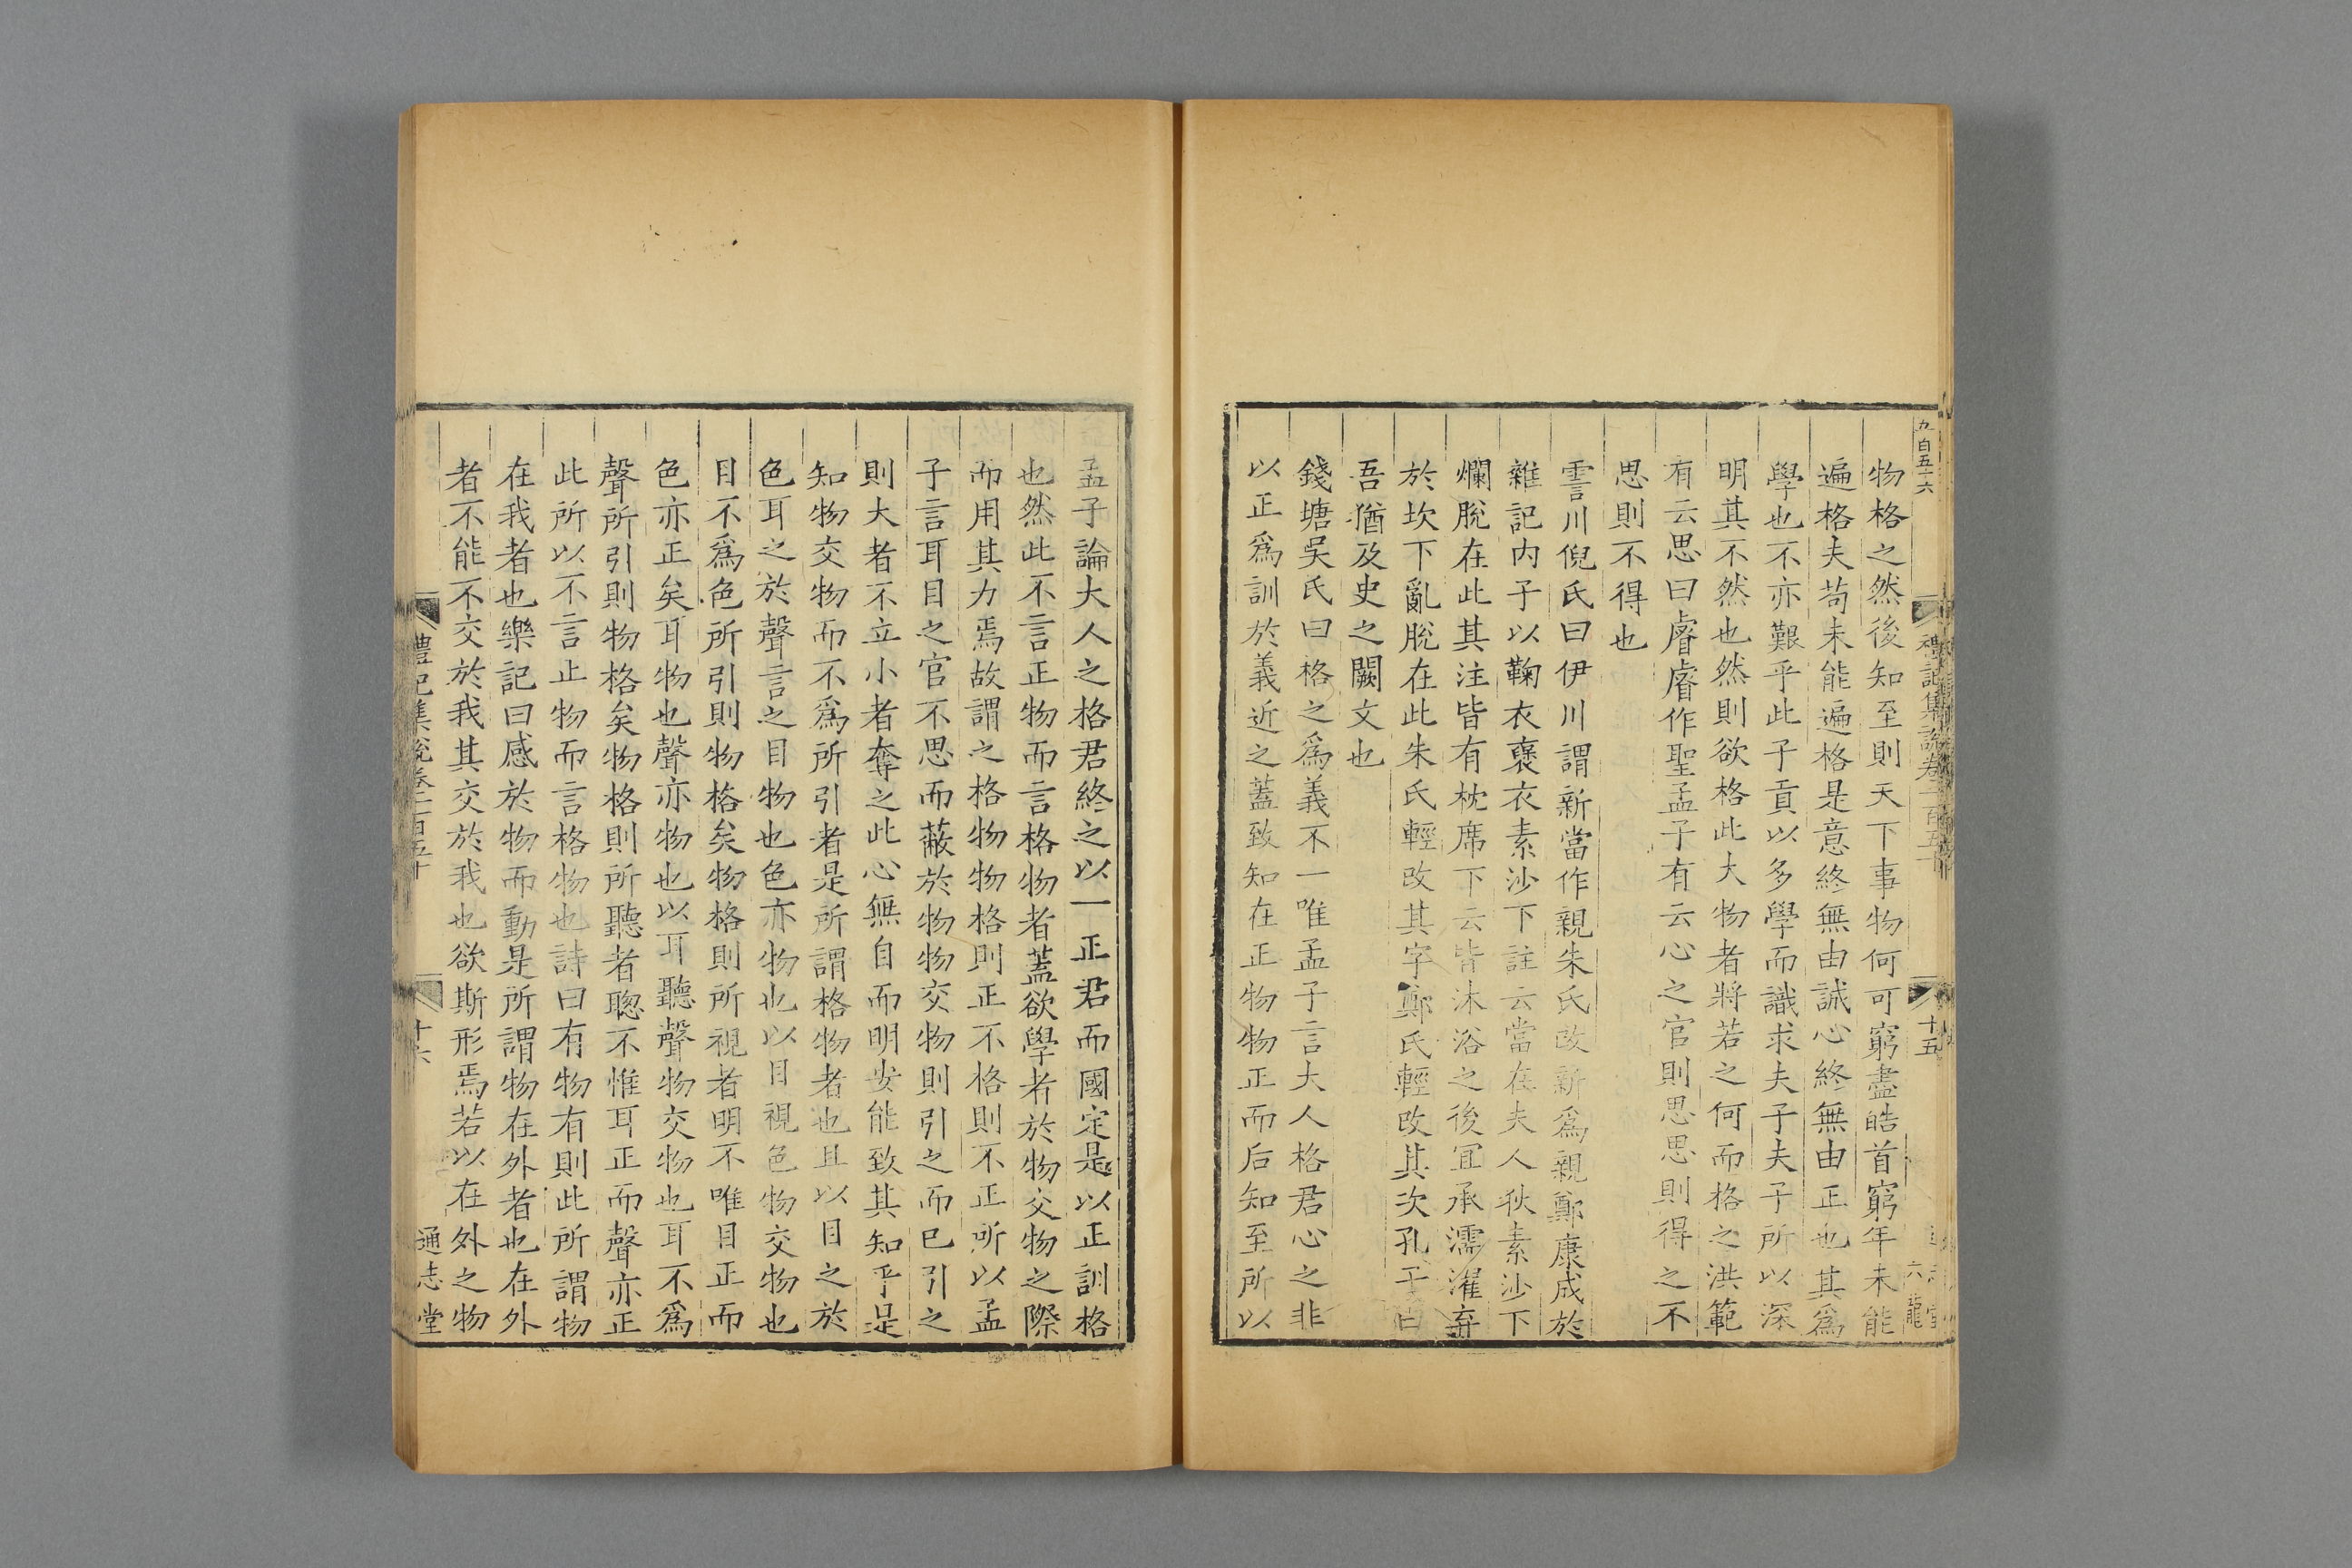 物格之然後知至則天下事物何可窮盡皓首窮年未能
遍格夫苟未能遍格是意終無由誠心終無由正也其爲
學也不亦艱乎此子貢以多學而識求夫子夫子所以深
明其不然也然則欲格此大物者將若之何而格之洪範
有云思曰睿睿作聖孟子有云心之官則思思則得之不
思則不得也
霅川倪氏曰伊川謂新當作親朱氏改新爲親鄭康成於
雜記内子以鞠衣襃衣素沙下註云當在夫人狄素沙下
爛脫在此其注皆有枕席下云皆沐浴之後宜承濡濯弃
於坎下亂脫在此朱氏輕改其字鄭氏輕改其次孔子曰
吾猶及史之闕文也
錢塘吳氏曰格之爲義不一唯孟子言大人格君心之非
以正爲訓於義近之蓋致知在正物物正而后知至所以
孟子論大人之格君終之以一正君而國定是以正訓格
也然此不言正物而言格物者蓋欲學者於物交物之際
而用其力焉故謂之格物物格則正不格則不正所以孟
子言耳目之官不思而蔽於物物交物則引之而已引之
則大者不立小者奪之此心無自而明安能致其知乎是
知物交物而不爲所引者是所謂格物者也且以目之於
色耳之於聲言之目物也色亦物也以目視色物交物也
目不爲色所引則物格矣物格則所視者明不唯目正而
色亦正矣耳物也聲亦物也以耳聽聲物交物也耳不爲
聲所引則物格矣物格則所聽者聰不惟耳正而聲亦正
此所以不言止物而言格物也詩曰有物有則此所謂物
在我者也樂記曰感於物而動是所謂物在外者也在外
者不能不交於我其交於我也欲斯形焉若以在外之物
禮記集說卷一百五十
十六
通志堂
九百五十六
禮記集說卷一百五十
十五